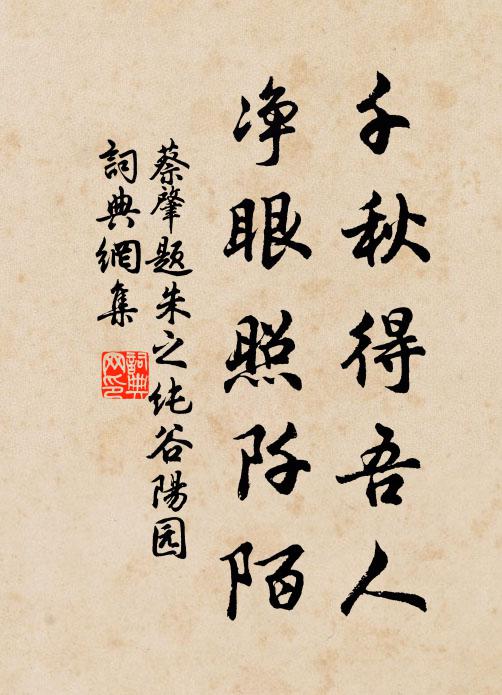 千秋得吾人
净眼照阡陌
蔡肇题朱之纯谷陽园
詞典網集
詞典网印